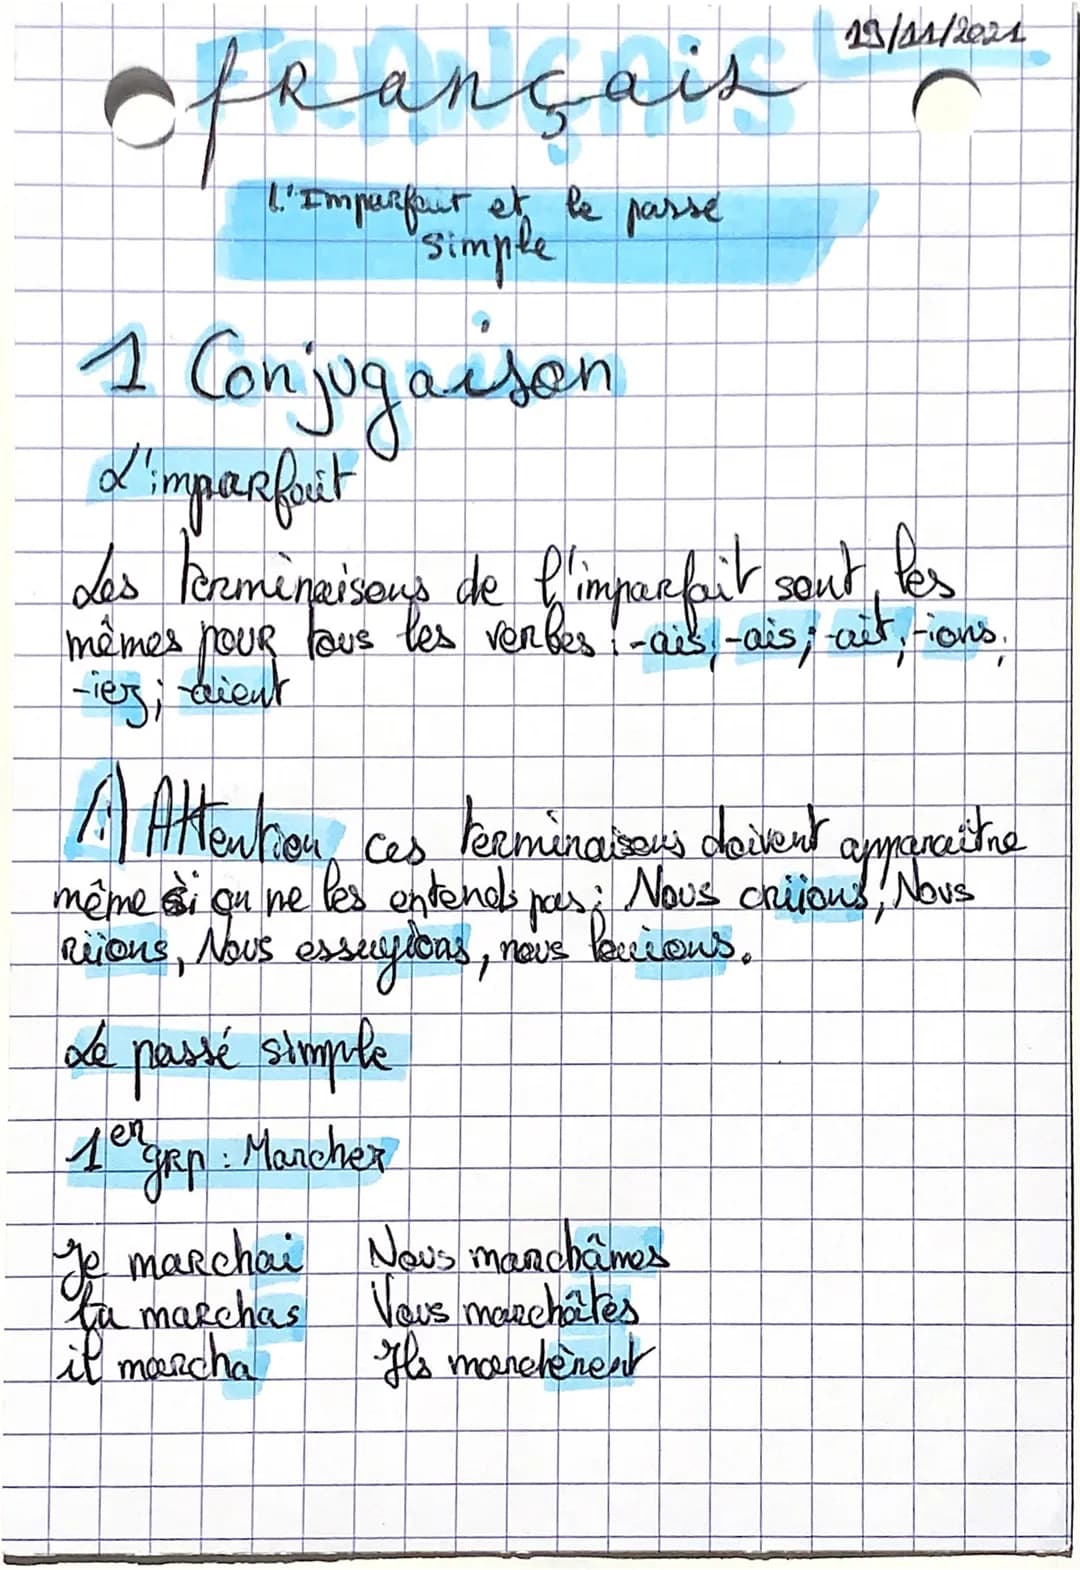 19/11/2021
FRANÇAIS
fRançais
L'Imparfait et le passé
simple
1 Conjugaison
L'imparfait
Les terminaisons de l'imparfait sont les
mêmes pour tous les verbes : -ais, -ais; -ait, -ions,
-iez; -aient
/!\ Attention, ces terminaisons doivent apparaître
même si on ne les entends pas : Nous criions, Nous
Riions, Nous essuyions, nous
Le passé simple
1er grp : Marcher
Je marchai Nous marchâmes
tu marchas Vous marchâtes
il marcha Ils marchèrent